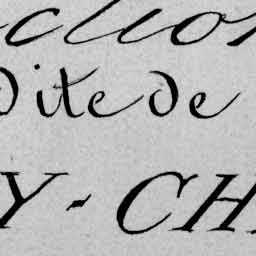 ction
Dite de
Y-CH